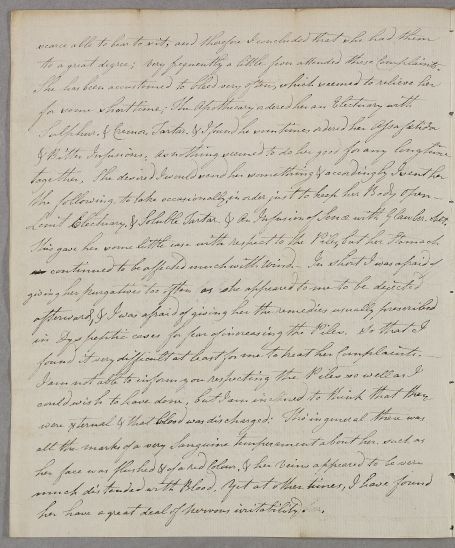 scarce able to bear to sit, and therefore I concluded that she had them
to a great degree; very frequently a little fever attended these Complaints.
She has been accustomed to bleed very often, which seemed to relieve her
for some short time; The Apothecary ordered her an Electuary with
Sulphur, & Cremor Tartar, & I found he sometimes ordered her Assafatida
& Bitter Infusions, as nothing seemed to do her good for any long time
together, She desired I would send her something & accordingly I sent her
the following, to take occasionally in order just to keep her Body open —
Lenit Electuary, & Soluble Tartar & an Infusion of Sena with Glauber Salt.
This gave her some little ease with respect to the Piles, but her Stomach
continued to be affected much with Wind — In short I was afraid of
giving her purgatives too often as she appeared to me to be dejected
afterward, & I was afraid of giving her the remedies usually prescribed
in Dyspeptic cases for fear of increasing the Piles. So that I
found it very difficult at least for me to treat her Complaints. —
I am not able to inform you respecting the Piles as well as I
could wish to have done, but I am inclined to think that they
were external & that blood was discharged. This in general there was
all the marks of a very Sanguine temperament about her such as
her face was flushed & of a red Colour, & her veins appeared to be very
much distended with Blood, Yet at other times, I have found
her have a great deal of nervous irritability.